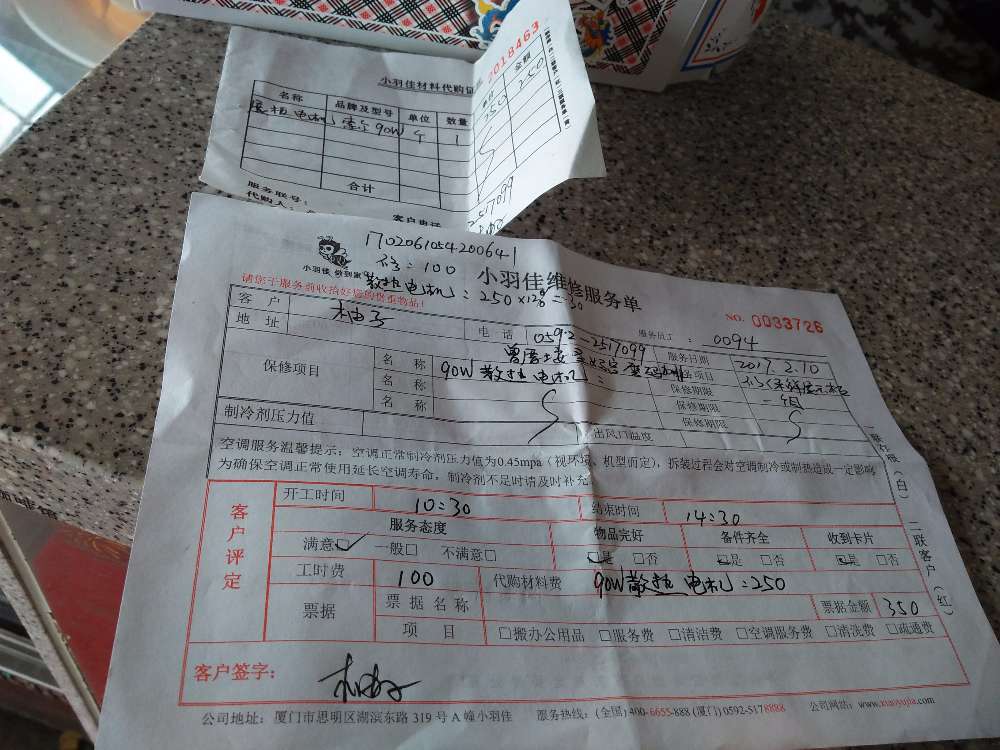 小羽佳材料代购证
2018463
名称 品牌及型号 单位 数量 单价 金额
散热电机 索尔90W 个 1 250 250
合计
服务联号:
代购人:
客户电话
2517099
1702061054200641
小羽佳 做到家
修:100
小羽佳维修服务单
散热电机:250×12%=30
请您于服务前收拾好您的贵重物品!
NO. 0033726
客户 柚子 电话 0592-2517099 服务员工: 0094
地址 服务日期 2017.2.10
保修项目 名称 90W散热电机: 保修期限
名称 保修期限
名称 保修期限
制冷剂压力值 出风口温度
空调服务温馨提示:空调正常制冷剂压力值为0.45mpa(视环境、机型而定),拆装过程会对空调制冷或制热造成一定影响
为确保空调正常使用延长空调寿命,制冷剂不足时请及时补充
一联存根(白) 二联客户(红)
客户评定
开工时间 10:30 结束时间 14:30
服务态度 物品完好 备件齐全 收到卡片
满意☑ 一般□ 不满意□ ☑是 □否 ☑是 □否 ☑是 □否
工时费 100 代购材料费 90W散热电机:250
票据 票据名称 票据金额 350
项目 □搬办公用品 □服务费 □清洁费 □空调服务费 □清洗费 □疏通费
客户签字: 柚子
公司地址:厦门市思明区湖滨东路 319 号 A 幢小羽佳 服务热线:(全国) 400-6655-888 (厦门) 0592-5178888 公司网站:www.xiaoyujia.com